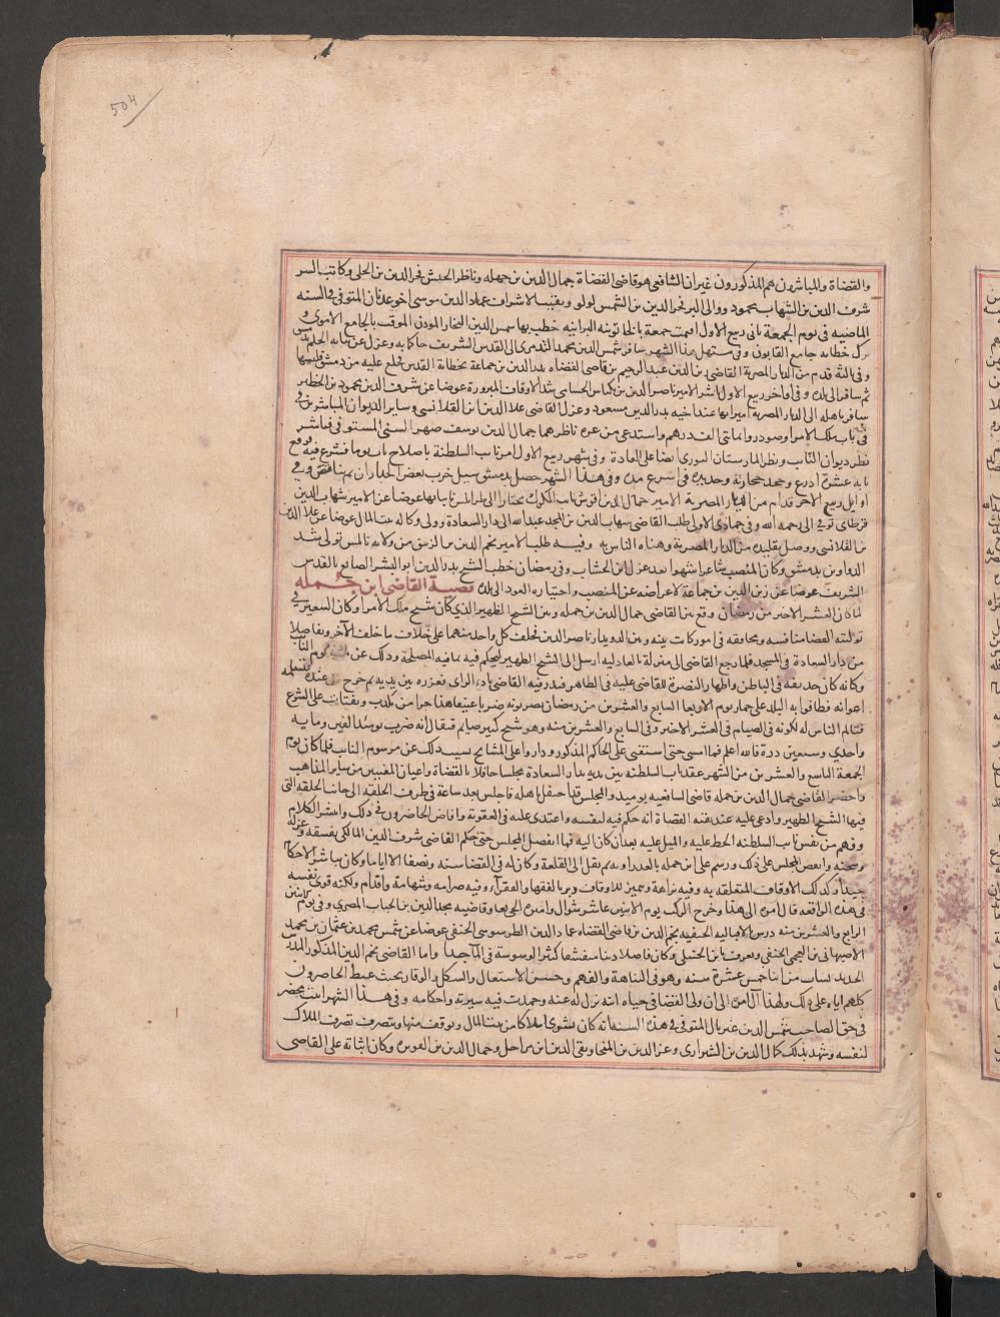 504
والقضاة والمباشرون هم المذكورون غير ان الشافعي هو قاضي القضاة جمال الدين بن جمله وناظر الجيش فخر الدين بن الحلي وكاتب السر
شرف الدين بن الشهاب محمود ووالي البر فخر الدين بن الشمس لولو ونقيب الاشراف عماد الدين موسى اخو عدنان المتوفى في السنه
الماضيه في يوم الجمعة ثاني ربيع الاول اقيمت جمعة بالخاتونيه البرانيه خطب بها شمس الدين النجار المودن الموقت بالجامع الاموي و
ترك خطابة جامع القابون وفي مستهل هذا الشهر سافر شمس الدين محمد التدمري الى القدس الشريف حاكما به وعزل عن نيابة الحكم بدمشق
وفي ثالثه قدم من الديار المصرية القاضي زين الدين عبد الرحيم بن قاضي القضاه بدر الدين بن جماعة بخطابة القدس فخلع عليه من دمشق
ثم سافر الى بلده وفي اواخر ربيع الاول باشر الامير ناصر الدين بن بكتاش الحسامي شد الاوقاف المبرورة عوضا عن شرف الدين محمود بن الخطير
سافر باهله الى الديار المصرية اميرا بها عند اخيه بدر الدين مسعود وعزل القاضي علا الدين ابن القلانسي وساير الديوان المباشرين في
باب ملك الامرا وصودروا بمائتي الف درهم واستدعي من غزه ناظرها جمال الدين يوسف صهر السني المستوفي فباشر
نظر ديوان النائب ونظر المارستان النوري ايضا على العادة وفي شهر ربيع الاول امر نائب السلطنة باصلاح باب توما فشرع فيه فرفع
بابه عشرة اذرع وجدد حجارته وحديده في اسرع مدة وفي هذا الشهر حصل بدمشق سيل خرب بعض الجدران ثم تناقص وفي
اوايل ربيع الاخر قدم من الديار المصرية الامير جمال الدين اقوش نايب الكرك مجتازا الى طرابلس نايبا بها عوضا عن الامير شهاب الدين
قرطاي توفي الى رحمه الله وفي جمادى الاولى طلب القاضي شهاب الدين بن المجد عبد الله الى دار السعادة وولي وكالة بيت المال عوضا عن علا الدين
بن القلانسي ووصل تقليده من الديار المصرية وهناه الناس به وفيه طلب الامير نجم الدين بن الزيبق من ولاية نابلس تولى شد
الدواوين بدمشق وكان المنصب شاغرا شهورا بعد عزل ابن الخشاب وفي رمضان خطب الشيخ بدر الدين ابو اليسر الصايغ بالقدس
الشريف عوضا عن زين الدين بن جماعة لاعراضه عن المنصب واختياره العود الى بلده قضية القاضي ابن جمله
لما كان العشر الاخير من رمضان وقع بين القاضي جمال الدين بن جمله وبين الشيخ الظهير الذي كان شيخ ملك الامرا وكان السفير في
توليته القضا منافسه ومحاققه في امور كانت بينه وبين الدويدار ناصر الدين فحلف كل واحد منهما على خلاف ما حلف الآخر وتفاصلا
من دار السعادة في المسجد فلما رجع القاضي الى منزله بالعادليه ارسل الى الشيخ الظهير ليحكم فيه بما فيه المصلحة وذلك عن مرسوم النايب
وكانه كان خديعة في الباطن واظهار النصرة للقاضي عليه في الظاهر فبدر فيه القاضي بادي الراي فعزره بين يديه ثم خرج من عنده فتسلمه
اعوانه فطافوا به البلد على حمار يوم الاربعا السابع والعشرين من رمضان يضربونه ضربا عنيفا هذا جزا من يكذب ويفتات على الشرع
فتالم الناس له لكونه في الصيام في العشر الاخير وفي السابع والعشرين منه وهو شيخ كبير صايم فيقال انه ضرب يومئذ الفين ومايه
واحدي وسبعين درة فالله اعلم فما امسى حتى استفتى على الحاكم المذكور وداروا على المشايخ بسبب ذلك عن مرسوم النايب فلما كان يوم
الجمعة التاسع والعشرين من الشهر عقد نايب السلطنه بين يديه بدار السعادة مجلسا حافلا بالقضاة واعيان المفتيين من ساير المذاهب
واحضر القاضي جمال الدين بن جمله قاضي الشافعيه يوميذ والمجلس قد احتفل باهله فاجلس بعد ساعة في طرف الحلقه الى جانب الحلقه التي
فيها الشيخ الظهير وادعى عليه عند بقية القضاة انه حكم فيه لنفسه واعتدى عليه في العقوبة وافاض الحاضرون في ذلك وانتشر الكلام
وفهم من نفس نايب السلطنه الحط عليه والميل عليه بعد ان كان اليه فما انفصل المجلس حتى حكم القاضي شرف الدين المالكي بفسقه وعزله
وسجنه وانفض المجلس على ذلك ورسم على ابن جمله بالعذراويه ثم نقل الى القلعة وكان له في القضا سنه ونصفا الا اياما وكان يباشر الاحكام
جيدا وكذلك الاوقاف المتعلقه به وفيه نزاهة وتمييز للاوقاف وبر بالفقها والفقرا وفيه صرامه وشهامة واقدام ولكنه قوى نفسه
في هذه الواقعه فال امره الى هذا وخرج الركب يوم الاثنين عاشر شوال واميره الجي بغا وقاضيه مجد الدين بن الحباب المصري وفي يوم الاثنين
الرابع والعشرين منه درس بالاقباليه الحنفيه نجم الدين بن قاضي القضاه عماد الدين الطرسوسي الحنفي عوضا عن شمس محمد بن عثمان بن محمد
الاصبهاني بن العجمي الحنفي ويعرف بابن الحنبلي وكان فاضلا دينا متقشفا كثير الوسوسة في الماء جدا واما القاضي نجم الدين المذكور المدرس
الجديد لساب من ابنا خمس عشرة سنه وهو في النباهة والفهم وحسن الاستعمال والشكل والوقار بحيث غبط الحاضرون
كلهم اباه على ذلك ولهذا آل امره الى ان ولي القضا في حياة ابيه نزل له عنه وحمدت فيه سيرته واحكامه وفي هذا الشهر اثبت محضر
في حق الصاحب شمس الدين غبريال المتوفى في هذه السنه انه كان يشتري املاكا من بيت المال ويوقف منها ويتصرف تصرف الملاك
لنفسه وشهد بذلك كمال الدين بن الشيرازي وعز الدين بن المنجا وتقي الدين ابن مراجل وجمال الدين بن القويره وكان اثباته على القاضي